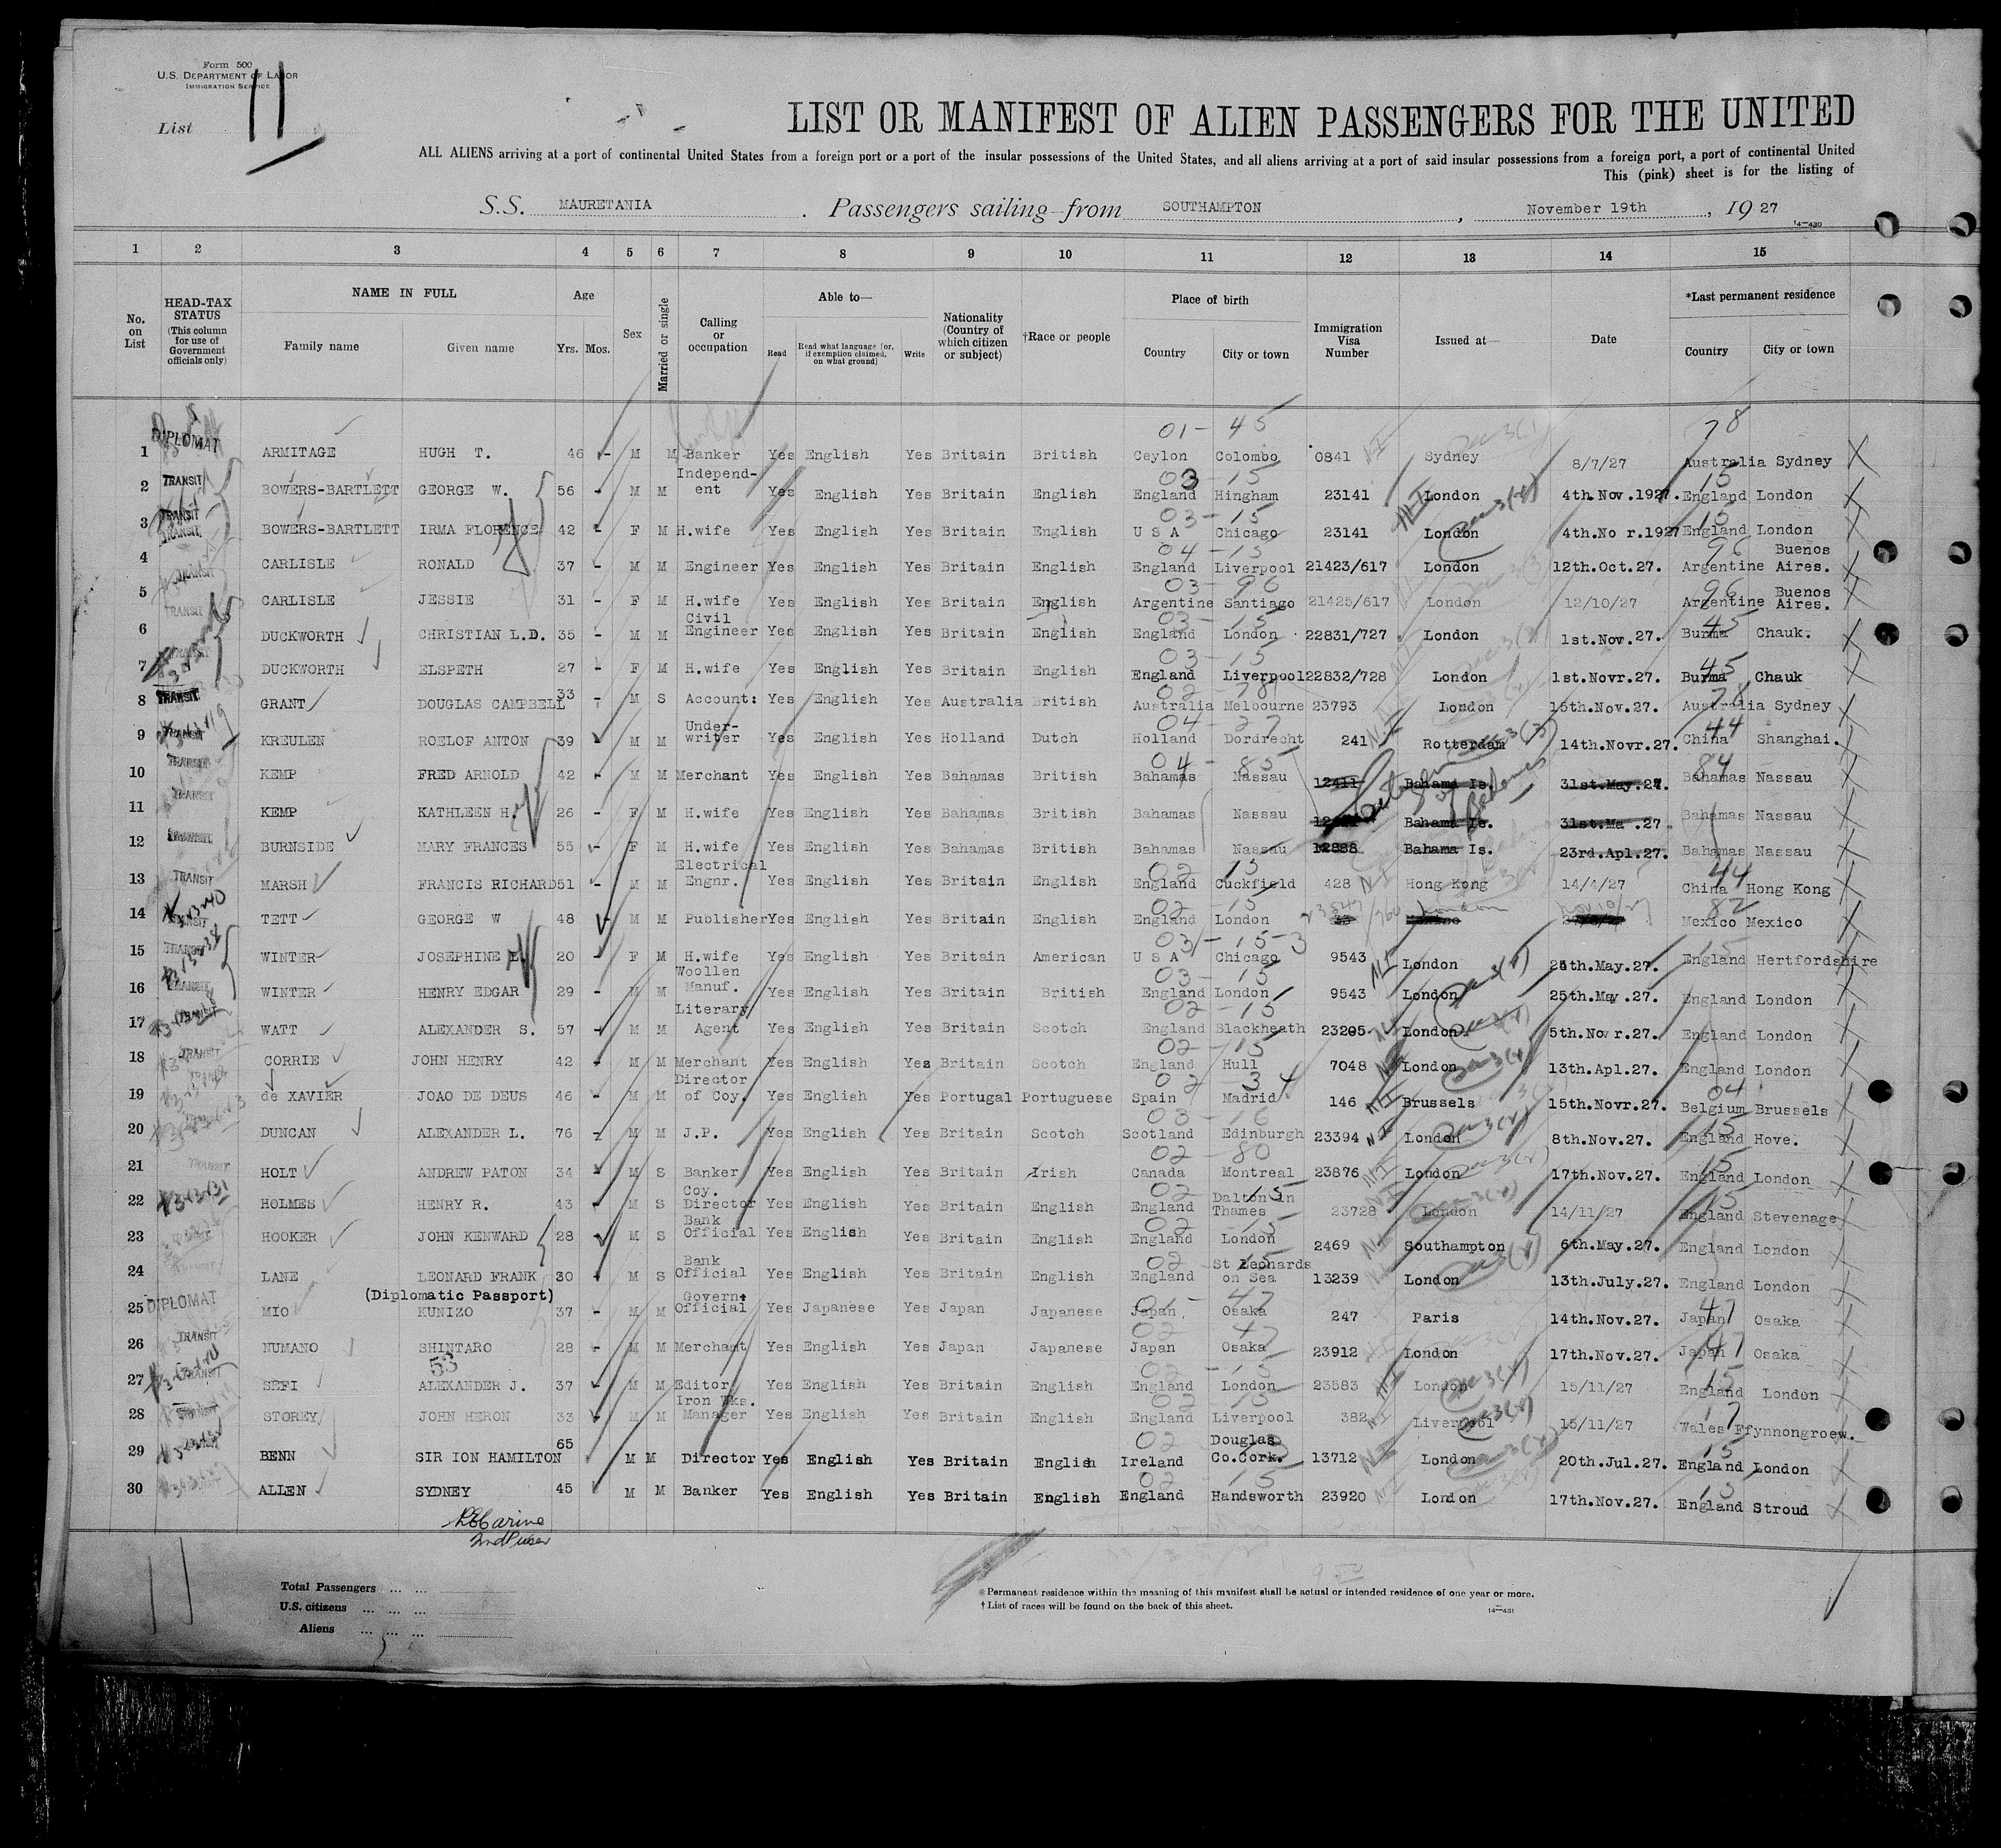 Form 500
U.S. DEPARTMENT OF LABOR
IMMIGRATION SERVICE
List 11
LIST OR MANIFEST OF ALIEN PASSENGERS FOR THE UNITED
ALL ALIENS arriving at a port of continental United States from a foreign port or a port of the insular possessions of the United States, and all aliens arriving at a port of said insular possessions from a foreign port, a port of continental United
This (pink) sheet is for the listing of
S.S. MAURETANIA . Passengers sailing from SOUTHAMPTON , November 19th , 19 27
14—430
1 2 3 4 5 6 7 8 9 10 11 12 13 14 15
No. on List
HEAD-TAX STATUS (This column for use of Government officials only)
NAME IN FULL
Family name Given name
Age
Yrs. Mos.
Sex
Married or single
Calling or occupation
Able to—
Read Read what language (or, if exemption claimed, on what ground) Write
Nationality (Country of which citizen or subject)
†Race or people
Place of birth
Country City or town
Immigration Visa Number
Issued at—
Date
*Last permanent residence
Country City or town
01 - 45 78
1 DIPLOMAT ARMITAGE HUGH T. 46 - M M Banker Yes English Yes Britain British Ceylon Colombo 0841 Sydney 8/7/27 Australia Sydney
03 - 15 15
2 TRANSIT BOWERS-BARTLETT GEORGE W. 56 - M M Independ-ent Yes English Yes Britain English England Hingham 23141 London 4th.Nov.1927. England London
03 - 15 15
3 TRANSIT BOWERS-BARTLETT IRMA FLORENCE 42 - F M H.wife Yes English Yes Britain English U S A Chicago 23141 London 4th.No r.1927 England London
04 - 15 96
4 TRANSIT CARLISLE RONALD 37 - M M Engineer Yes English Yes Britain English England Liverpool 21423/617 London 12th.Oct.27. Argentine Buenos Aires.
03 - 96 96
5 TRANSIT CARLISLE JESSIE 31 - F M H.wife Yes English Yes Britain English Argentine Santiago 21425/617 London 12/10/27 Argentine Buenos Aires.
03 - 15 45
6 TRANSIT DUCKWORTH CHRISTIAN L.D. 35 - M M Civil Engineer Yes English Yes Britain English England London 22831/727 London 1st.Nov.27. Burma Chauk.
03 - 15 45
7 DUCKWORTH ELSPETH 27 - F M H.wife Yes English Yes Britain English England Liverpool 22832/728 London 1st.Novr.27. Burma Chauk
02 - 78 78
8 TRANSIT GRANT DOUGLAS CAMPBELL 33 - M S Account: Yes English Yes Australia British Australia Melbourne 23793 London 15th.Nov.27. Australia Sydney
04 - 27 44
9 TRANSIT KREULEN ROELOF ANTON 39 M M Under-writer Yes English Yes Holland Dutch Holland Dordrecht 241 Rotterdam 14th.Novr.27. China Shanghai.
04 - 85 84
10 TRANSIT KEMP FRED ARNOLD 42 - M M Merchant Yes English Yes Bahamas British Bahamas Nassau 12411 Bahama Is. 31st.May.27. Bahamas Nassau
11 TRANSIT KEMP KATHLEEN H. 26 - F M H.wife Yes English Yes Bahamas British Bahamas Nassau Bahama Is. 31st.Ma .27. Bahamas Nassau
12 TRANSIT BURNSIDE MARY FRANCES 55 - F M H.wife Yes English Yes Bahamas British Bahamas Nassau 12888 Bahama Is. 23rd.Apl.27. Bahamas Nassau
02 15 44
13 TRANSIT MARSH FRANCIS RICHARD 51 - M M Electrical Engnr. Yes English Yes Britain English England Cuckfield 428 Hong Kong 14/4/27 China Hong Kong
02 - 15 82
14 TRANSIT TETT GEORGE W 48 - M M Publisher Yes English Yes Britain English England London London Mexico Mexico
03 - 15 - 3 15
15 TRANSIT WINTER JOSEPHINE 20 F M H.wife Yes English Yes Britain American U S A Chicago 9543 London 25th.May.27. England Hertfordshire
03 - 15
16 TRANSIT WINTER HENRY EDGAR 29 - M M Woollen Manuf. Yes English Yes Britain British England London 9543 London 25th.May.27. England London
02 - 15
17 WATT ALEXANDER S. 57 - M M Literary Agent Yes English Yes Britain Scotch England Blackheath 23205 London 5th.Nov r.27. England London
02 - 15
18 TRANSIT CORRIE JOHN HENRY 42 - M M Merchant Yes English Yes Britain Scotch England Hull 7048 London 13th.Apl.27. England London
02 - 34 04
19 de XAVIER JOAO DE DEUS 46 - M M Director of Coy. Yes English Yes Portugal Portuguese Spain Madrid 146 Brussels 15th.Novr.27. Belgium Brussels
03 - 16 15
20 DUNCAN ALEXANDER L. 76 - M M J.P. Yes English Yes Britain Scotch Scotland Edinburgh 23394 London 8th.Nov.27. England Hove.
02 - 80 15
21 TRANSIT HOLT ANDREW PATON 34 - M S Banker Yes English Yes Britain Irish Canada Montreal 23876 London 17th.Nov.27. England London
02 15 15
22 HOLMES HENRY R. 43 - M S Coy. Director Yes English Yes Britain English England Dalton in Thames 23728 London 14/11/27 England Stevenage
02 - 15
23 HOOKER JOHN KENWARD 28 M S Bank Official Yes English Yes Britain English England London 2469 Southampton 6th.May.27. England London
02 15
24 LANE LEONARD FRANK 30 - M S Bank Official Yes English Yes Britain English England St Leonards on Sea 13239 London 13th.July.27. England London
(Diplomatic Passport)
01 - 47 47
25 DIPLOMAT MIO KUNIZO 37 - M M Govern: Official Yes Japanese Yes Japan Japanese Japan Osaka 247 Paris 14th.Nov.27. Japan Osaka
02 47 47
26 TRANSIT NUMANO SHINTARO 28 - M M Merchant Yes English Yes Japan Japanese Japan Osaka 23912 London 17th.Nov.27. Japan Osaka
53
02 - 15 15
27 TRANSIT SEFI ALEXANDER J. 37 - M M Editor Yes English Yes Britain English England London 23583 London 15/11/27 England London
02 15 17
28 TRANSIT STOREY JOHN HERON 33 - M M Iron Wks. Manager Yes English Yes Britain English England Liverpool 382 Liverpool 15/11/27 Wales Ffynnongroew.
02 15
29 BENN SIR ION HAMILTON 65 M M Director Yes English Yes Britain English Ireland Douglas Co.Cork. 13712 London 20th.Jul.27. England London
02 15 15
30 ALLEN SYDNEY 45 M M Banker Yes English Yes Britain English England Handsworth 23920 London 17th.Nov.27. England Stroud
11
Total Passengers ... ...
U.S. citizens ... ... ...
Aliens ... ... ...
*Permanent residence within the meaning of this manifest shall be actual or intended residence of one year or more.
†List of races will be found on the back of this sheet.
14—431